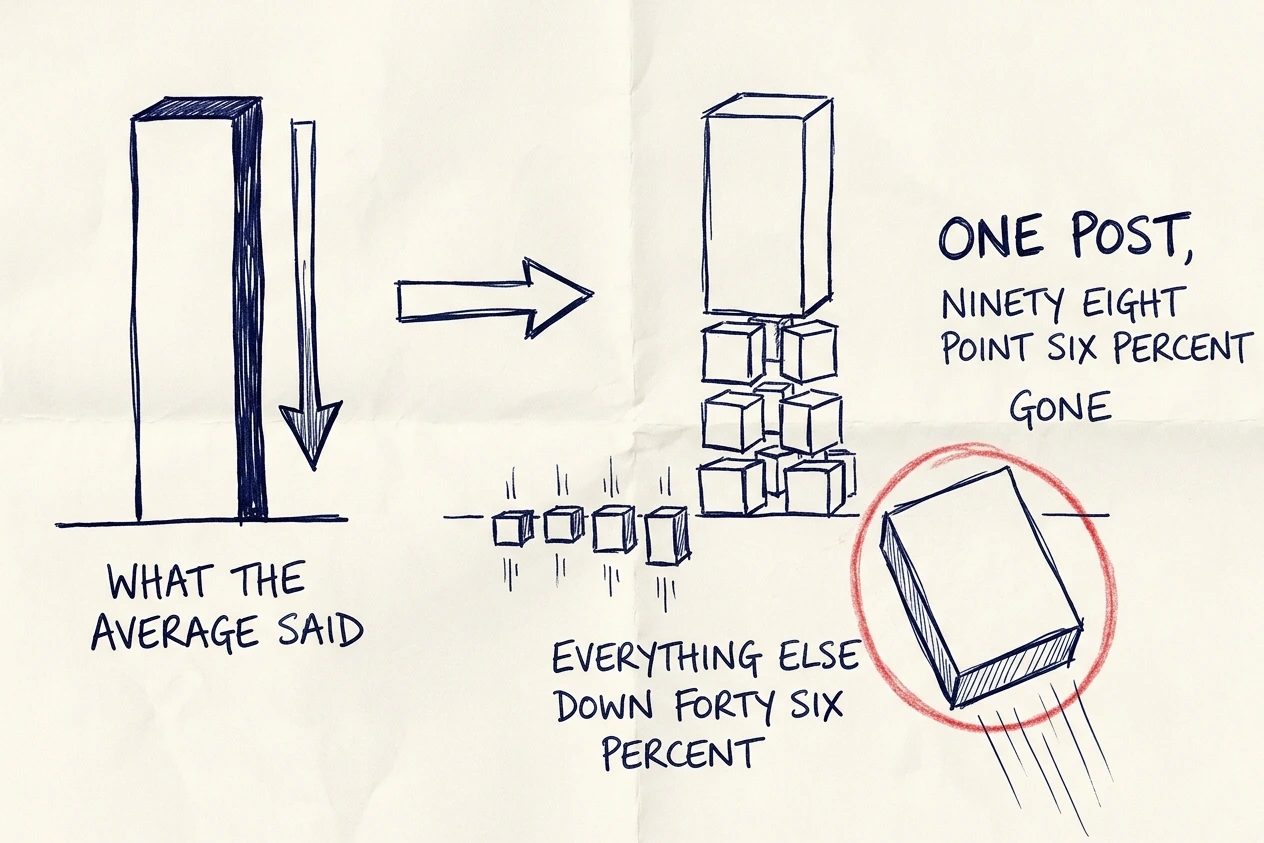 WHAT THE
AVERAGE SAID
ONE POST,
NINETY EIGHT
POINT SIX PERCENT
GONE
EVERYTHING ELSE
DOWN FORTY SIX
PERCENT